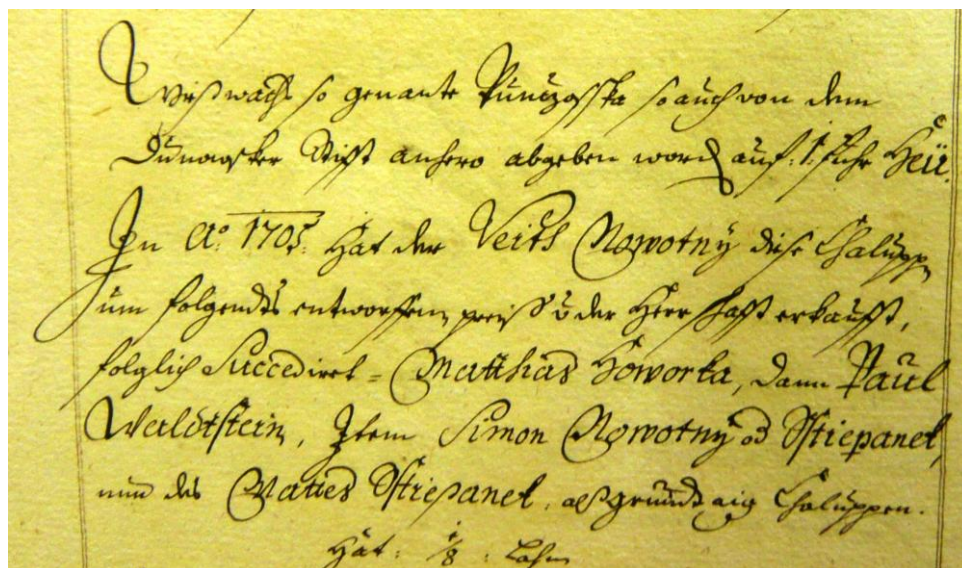 Wießwachs so genante so auch von dem
Stifft anhero abgeben word auf: 1: fuhr Heü.
In Aō: 1705: Hat der Veith Nowotnÿ diese Chalupp
um folgendts entworffenen preiß v der Herrschafft erkaufft,
folglich Succediret = Matthias Howorka, dann Paul
Waldtstein, Item Simon Nowotnÿ od Sstiepanek,
nun des Maties Sstiepanek, alß grundt aig Chaluppen.
Hat: 1/8: Lahn